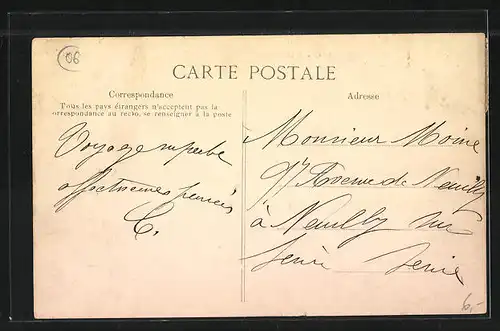 06
CARTE POSTALE
Correspondance
Tous les pays étrangers n'acceptent pas la
correspondance au recto, se renseigner à la poste
Adresse
Voyage superbe
affectueuses pensées
C.
Monsieur Moine
97 Avenue de Neuilly
à Neuilly sur
Seine Seine